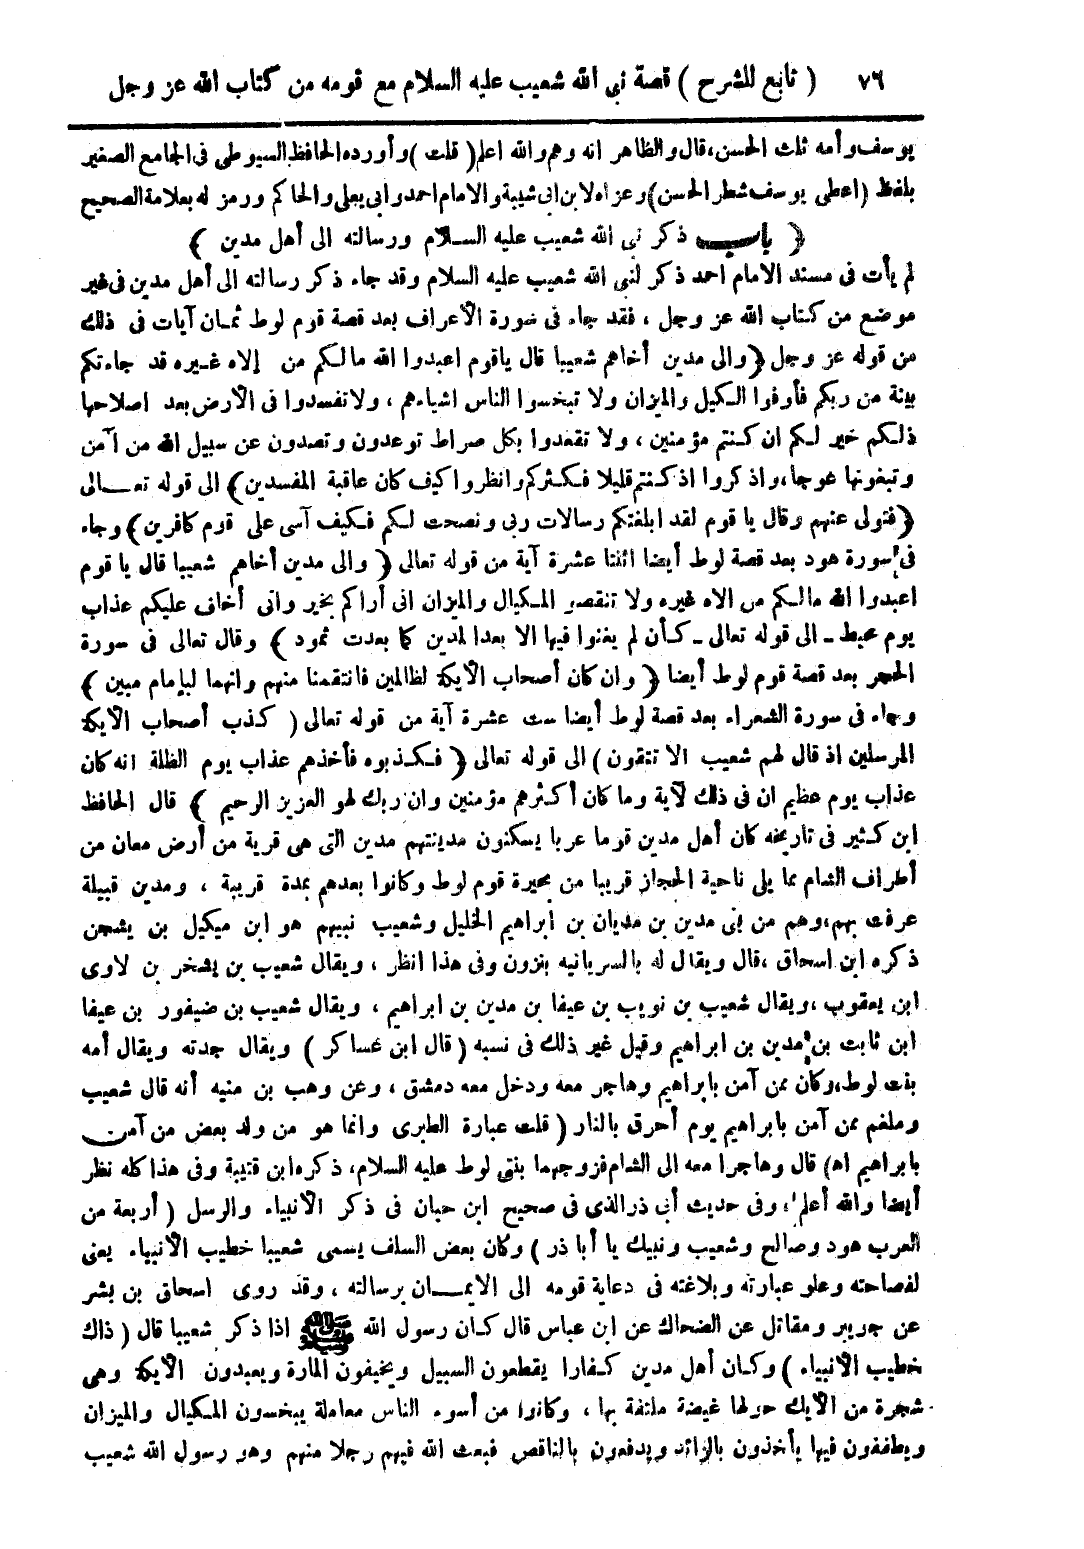 ٧٦ ( تابع للشرح ) قصة نبي الله شعيب عليه السلام مع قومه من كتاب الله عز وجل
يوسف وأمه ثلث الحسن، قال والظاهر انه وهم والله اعلم ( قلت ) وأورده الحافظ السيوطى فى الجامع الصغير
بلفظ ( اعطى يوسف شطر الحسن ) وعزاه لابن ابى شيبة والامام احمد وابى يعلى والحاكم ورمز له بعلامة الصحيح
( باب ذكر نبى الله شعيب عليه السلام ورسالته الى أهل مدين )
لم يأت فى مسند الامام احمد ذكر لنبى الله شعيب عليه السلام وقد جاء ذكر رسالته الى أهل مدين فى غير
موضع من كتاب الله عز وجل ، فقد جاء فى سورة الأعراف بعد قصة قوم لوط ثمان آيات فى ذلك
من قوله عز وجل ( والى مدين أخاهم شعيبا قال ياقوم اعبدوا الله مالكم من إلاه غيره قد جاءتكم
بينة من ربكم فأوفوا الكيل والميزان ولا تبخسوا الناس اشياءهم ، ولا تفسدوا فى الأرض بعد اصلاحها
ذلكم خير لكم ان كنتم مؤمنين ، ولا تقعدوا بكل صراط توعدون وتصدون عن سبيل الله من آمن
وتبغونها عوجا، واذكروا اذ كنتم قليلا فكثركم وانظروا كيف كان عاقبة المفسدين ) الى قوله تعالى
( فتولى عنهم وقال يا قوم لقد ابلغتكم رسالات ربى ونصحت لكم فكيف آسى على قوم كافرين ) وجاء
فى سورة هود بعد قصة لوط أيضا اثنتا عشرة آية من قوله تعالى ( والى مدين أخاهم شعيبا قال يا قوم
اعبدوا الله مالكم من الاه غيره ولا تنقصوا المكيال والميزان انى أراكم بخير وانى أخاف عليكم عذاب
يوم محيط ـ الى قوله تعالى ـ كأن لم يغنوا فيها الا بعدا لمدين كما بعدت ثمود ) وقال تعالى فى سورة
الحجر بعد قصة قوم لوط أيضا ( وان كان أصحاب الأيكة لظالمين فانتقمنا منهم وانهما لبإمام مبين )
وجاء فى سورة الشعراء بعد قصة لوط أيضا ست عشرة آية من قوله تعالى ( كذب أصحاب الأيكة
المرسلين اذ قال لهم شعيب الا تتقون ) الى قوله تعالى ( فكذبوه فأخذهم عذاب يوم الظلة انه كان
عذاب يوم عظيم ان فى ذلك لآية وما كان أكثرهم مؤمنين وان ربك لهو العزيز الرحيم ) قال الحافظ
ابن كثير فى تاريخه كان أهل مدين قوما عربا يسكنون مدينتهم مدين التى هى قرية من أرض معان من
أطراف الشام مما يلى ناحية الحجاز قريبا من بحيرة قوم لوط وكانوا بعدهم بمدة قريبة ، ومدين قبيلة
عرفت بهم، وهم من بنى مدين بن مديان بن ابراهيم الخليل وشعيب نبيهم هو ابن ميكيل بن يشجن
ذكره ابن اسحاق ، قال ويقال له بالسريانيه بنزون وفى هذا انظر ، ويقال شعيب بن يشخر بن لاوى
ابن يعقوب ، ويقال شعيب بن نويب بن عيفا بن مدين بن ابراهيم ، ويقال شعيب بن ضيفور بن عيفا
ابن ثابت بن مدين بن ابراهيم وقيل غير ذلك فى نسبه ( قال ابن عساكر ) ويقال جدته ويقال أمه
بنت لوط، وكان ممن آمن بابراهيم وهاجر معه ودخل معه دمشق ، وعن وهب بن منبه أنه قال شعيب
وملغم ممن آمن بابراهيم يوم أحرق بالنار ( قلت عبارة الطبرى وانما هو من ولد بعض من آمن
بابراهيم اه ) قال وهاجرا معه الى الشام فزوجهما بنتى لوط عليه السلام، ذكره ابن قتيبة وفى هذا كله نظر
أيضا والله أعلم، وفى حديث أبى ذر الذى فى صحيح ابن حبان فى ذكر الأنبياء والرسل ( أربعة من
العرب هود وصالح وشعيب ونبيك يا أبا ذر ) وكان بعض السلف يسمى شعيبا خطيب الأنبياء يعنى
لفصاحته وعلو عبارته وبلاغته فى دعاية قومه الى الايمان برسالته ، وقد روى اسحاق بن بشر
عن جويبر ومقاتل عن الضحاك عن ابن عباس قال كان رسول الله ﷺ اذا ذكر شعيبا قال ( ذاك
خطيب الأنبياء ) وكان أهل مدين كفارا يقطعون السبيل ويخيفون المارة ويعبدون الأيكة وهى
شجرة من الأيك حولها غيضة ملتفة بها ، وكانوا من أسوء الناس معاملة يبخسون المكيال والميزان
ويطففون فيها يأخذون بالزائد ويدفعون بالناقص فبعث الله فيهم رجلا منهم وهو رسول الله شعيب